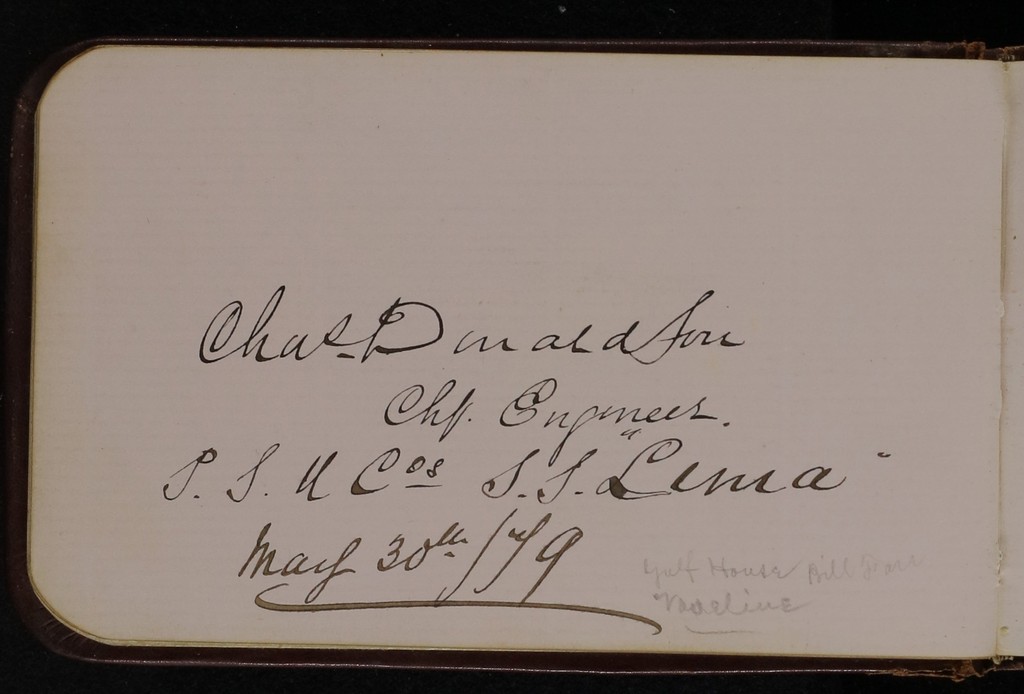 Chas. Donaldson
Chf. Engineer.
P. S. N Cos S.S. "Lima"
May 30th /79
House Bill